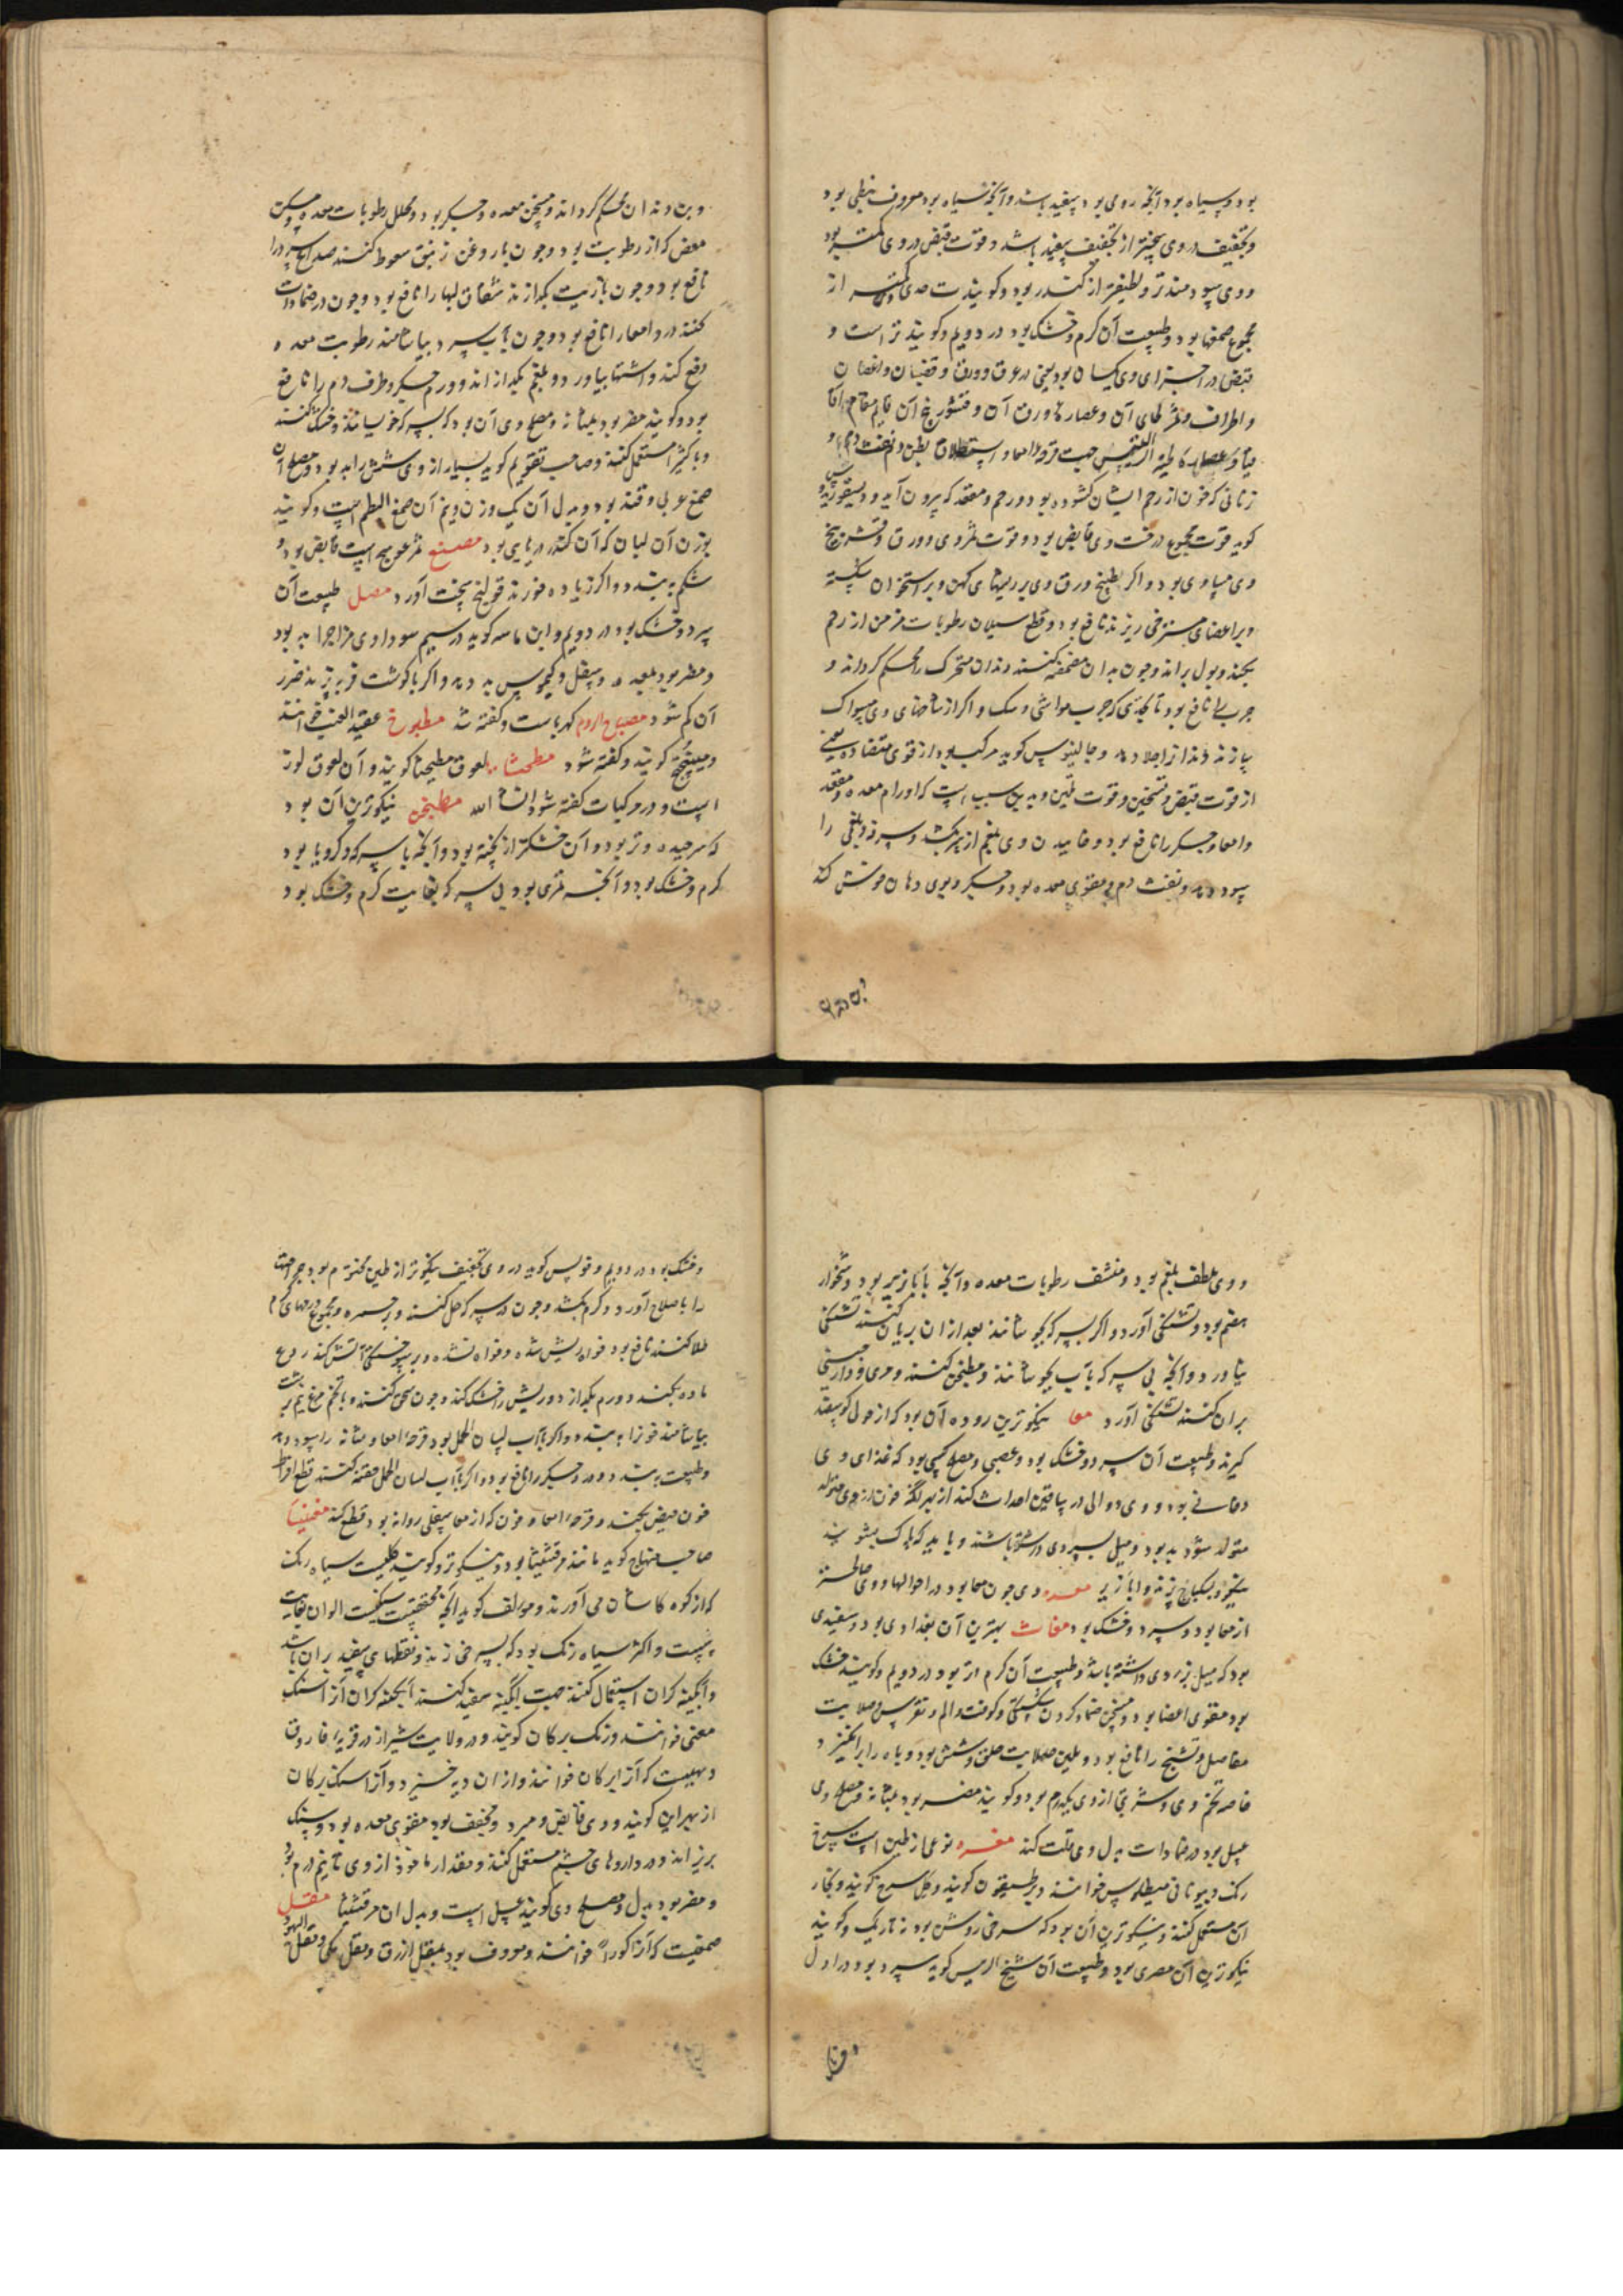 بود و سیاه بود آنچه رومی بود سفید باشد و آنچه سیاه بود معروف بنبطی بود
و تجفیف در وی بیشتر از تجفیف سفید باشد و قوت قبض در وی کمتر بود
و وی سودمندتر و لطیفتر از کندر بود و گویند
مجموع صمغها بود و طبیعت آن گرم و خشک بود در دویم و گویند تر است و
قبض در اجزای وی یکسان بود یعنی در عروق و ورق و قضبان و اغصان
و اطراف و ثمر لحای آن و عصاره ورق آن و قشور بیخ آن قایم مقام اقا
قیا و جهت قرحه امعا و استطلاق بطن و نفث دم و
زنانی که خون از رحم ایشان گشوده بود و رحم و مقعد که بیرون آید و دیسقوریدوس
گوید قوت مجموع درخت وی قابض بود و قوت ثمر وی و ورق و قشر بیخ
وی مساوی بود و اگر بطبیخ ورق وی بر ریشهای کهن و بر استخوان شکسته
و بر اعضای مسترخی ریزند نافع بود و قطع سیلان رطوبات مزمن از رحم
بکند و بول براند و چون بدان مضمضه کنند دندان متحرک را محکم گرداند و
جرب را نافع بود تا بحدی که جرب مواشی و سگ و اگر از شاخهای وی مسواک
سازند دندان را جلا دهد و جالینوس گوید مرکب بود از قوی متضاده یعنی
از قوت قبض و تسخین و قوت تلیین و بدین سبب است که اورام معده و مقعد
و امعا و جگر را نافع بود و خاییدن وی بلغم از سر بکشد و سرفه بلغمی را
سود دهد و نفث دم و مقوی معده بود و جگر و بوی دهان خوش کند
و بن دندان محکم گرداند و مسخن معده و جگر بود و محلل رطوبات معده و مسکن
مغص که از رطوبت بود و چون با روغن زنبق سعوط کنند صداع سرد را
نافع بود و چون با زیت بگدازند شقاق لبها را نافع بود و چون در ضمادات
کنند درد امعا را نافع بود و چون بآب سرد بیاشامند رطوبت معده
دفع کند و اشتها بیاورد و بلغم بگدازاند و ورم جگر و طرف دم را نافع
بود و گویند مضر بود بمثانه و مصلح وی آن بود که بسرکه خیسانند و خشک کنند
و با کثیرا مستعمل کنند و صاحب تقویم گوید بسیار از وی شش را بد بود و مصلح آن
صمغ عربی و قند بود و بدل آن یک وزن و نیم آن صمغ البطم است و گویند
بوزن آن لبان که آن کندر دریایی بود مصنع ثمر عوسج است قابض بود و
شکم ببندد و اگر زیاده خورند قولنج سخت آورد مصل طبیعت آن
سرد و خشک بود در دویم و ابن ماسه گوید در سیم سوداوی مزاج را بد بود
و مضر بود بمعده و سفل و کیموس بد دهد و اگر با گوشت فربه پزند ضرر
آن کم شود مصباح الروم کهرباست و گفته شد مطبوخ عقید العنب خوانند
و میبختج گویند و گفته شود مطحثا لعوق مطیحثا گویند و آن لعوق لوز
است و در مرکبات گفته شود ان شا الله مطجن نیکوترین آن بود
که و تر بود و آن خشکتر از پخته بود و آنچه با سرکه و کرویا بود
گرم و خشک بود و آنچه مری بود بی سرکه بغایت گرم و خشک بود
و وی ملطف بلغم بود و منشف رطوبات معده و آنچه با ابازیر بود دشخوار
هضم بود و تشنگی آورد و اگر بسرکه بجوشانند بعد از آن بریان کنند تشنگی
نیاورد و آنچه بی سرکه بآب بجوشانند و مطجن کنند و مری و دارچینی
بر آن کنند تشنگی آورد معا نیکوترین روده آن بود که از حولی گوسفند
گیرند و طبیعت آن سرد و خشک بود و عصبی و مصلح کسی بود که غذای وی
دخانی بود و وی دوالی در ساقین احداث کند از بهر آنکه خون از وی متولد
متولد شود بد بود و میل بسردی داشته باشند و باید که پاک بشویند
پزند و ابازیر معده وی چون معا بود در احوالها و وی صالحتر
از معا بود و سرد و خشک بود مغاث بهترین آن بغدادی بود و سفیدی
بود که میل بزردی داشته باشد و طبیعت آن گرم و تر بود در دویم و گویند خشک
بود مقوی اعضا بود و مسخن ضماد کردن شکستگی و کوفت و الم و نقرس و صلابت
مفاصل و تشنج را نافع بود و ملین صلابت حلق و شش بود و باه را برانگیزد
خاصه تخم وی و شربتی از وی یکدرم بود و گویند مضر بود بمثانه و مصلح وی
عسل بود در ضمادات بدل وی ملت کند مغره نوعی از طین است سرخ
رنگ و بیونانی میلطوس خوانند و طیقون گویند و گل سرخ گویند و نجار
آن مستعمل کنند و نیکوترین آن بود که سرخی روشن بود نه تاریک و گویند
نیکوترین آن مصری بود و طبیعت آن شیخ الریس گوید سرد بود در اول
و خشک بود در دویم و فولس گوید در وی تجفیف نیکوتر از طین مختوم بود جراحت
را باصلاح آورد و کرم بکشد و چون در سرکه حل کنند و بر حمره و مجموع ورمهای گرم
طلا کنند نافع بود خواه ریش شده و خواه نشده و بر سوختگی آتش کنند ردع
ماده بکند و ورم بگدازد و ریش را خشک کند و چون سحق کنند و با تخم مرغ نیم برشت
بیاشامند خون را ببندد و اگر بآب لسان الحمل بود قرحه امعا و مثانه را سود دهد
و طبیعت ببندد و درد جگر را نافع بود و اگر بآب لسان الحمل حقنه کنند قطع افراط
خون حیض بکند و قرحه امعا و خون که از معا سفلی روانه بود قطع کند مغنیسا
صاحب منهاج گوید مانند مرقشیثا بود و نیکوتر و گویند گلیست سیاه رنگ
که از کوه کاشان می آورند و مولف گوید آنچه محققیست سنگیست الوان بغایت
سست و اکثر سیاه رنگ بود که بسرخی زند و نقطهای سفید بر آن باشد
و آبگینه گران استعمال کنند جهت آبگینه سفید کنند آبگینه گران آنرا سنگ
مغنی خوانند و زنگ برکان گویند و در ولایت شیراز در قریه فاروق
دهیست که آنرا ابرکان خوانند و از آن دیه خیزد و آنرا سنگ برکان
از بهر این گویند و وی قابض و مبرد و مجفف بود مقوی معده بود و سنگ
بریزاند و در داروهای چشم مستعمل کنند و مقدار ماخوذ از وی تا نیم درم بود
و مضر بود و مصلح وی گویند عسل است و بدل آن مرقشیثا مقل
صمغیست که آنرا کور خوانند و معروف بود بمقل ازرق و مقل مکی و مقل الیهود